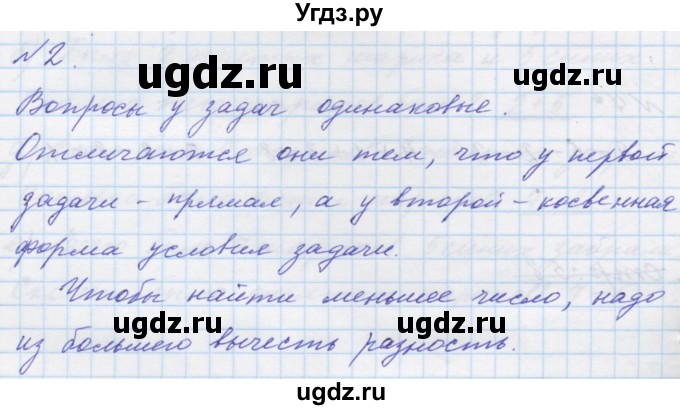 Угдз.ру
№2.
ugdz.ru
ugdz.ru
Вопросы у задач одинаковые.
Отличаются они тем, что у первой
задачи - прямая, а у второй - косвенная
форма условия задачи.
Чтобы найти меньшее число, надо
ugdz.ru
ugdz.ru
из большего вычесть разность.
ugdz.ru